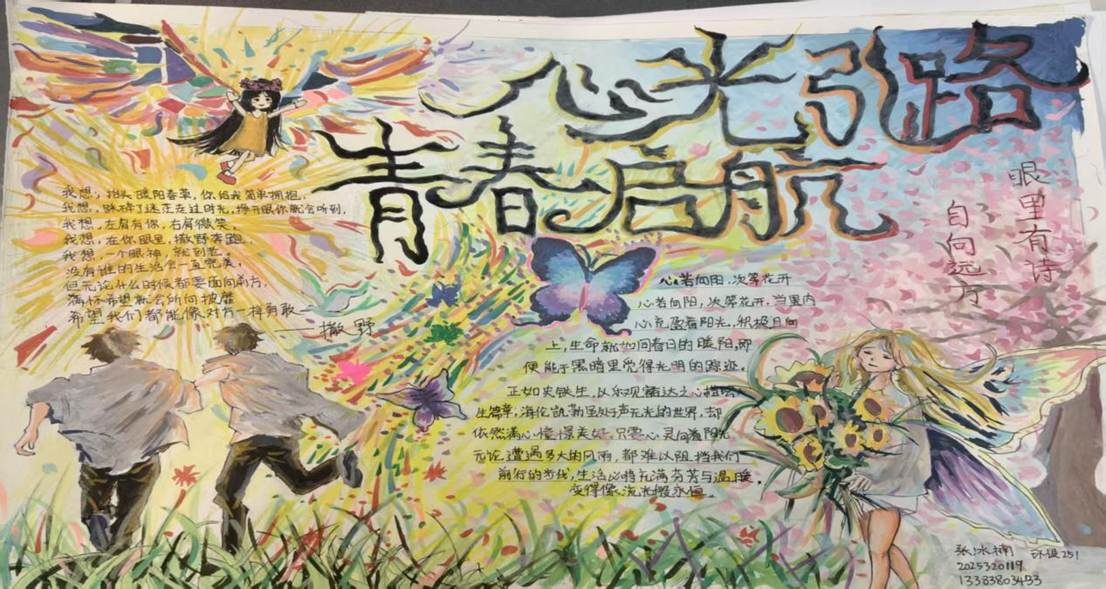 心光引路
青春启航
眼里有诗
自向远方
我想，抬头暖阳春草，你给我简单拥抱，
我想，踩碎了迷茫走过时光，睁开眼你就会听到，
我想，左肩有你，右肩微笑，
我想，在你眼里，撒野奔跑，
我想，一个眼神，就到老，
没有谁的生活会一直完美，
但无论什么时候都要面向前方，
满怀希望就会所向披靡
希望我们都能像对方一样勇敢
——撒野
心若向阳，次第花开
心若向阳，次第花开，当里内
心充盈着阳光，积极日向
上，生命就如同春日的暖阳，即
便能于黑暗里觉得光明的踪迹。
正如史铁生，以乐观豁达之心
生德華，海伦凯勒虽处于声无光的世界，却
依然满心憧憬美好，只要心灵向着阳光
无论遭遇多大的风雨，都难以阻挡我们
前行的步伐，生活必将充满芬芳与温暖，
变得像流光般永恒
张冰楠 环设251
2025320119
13383803453